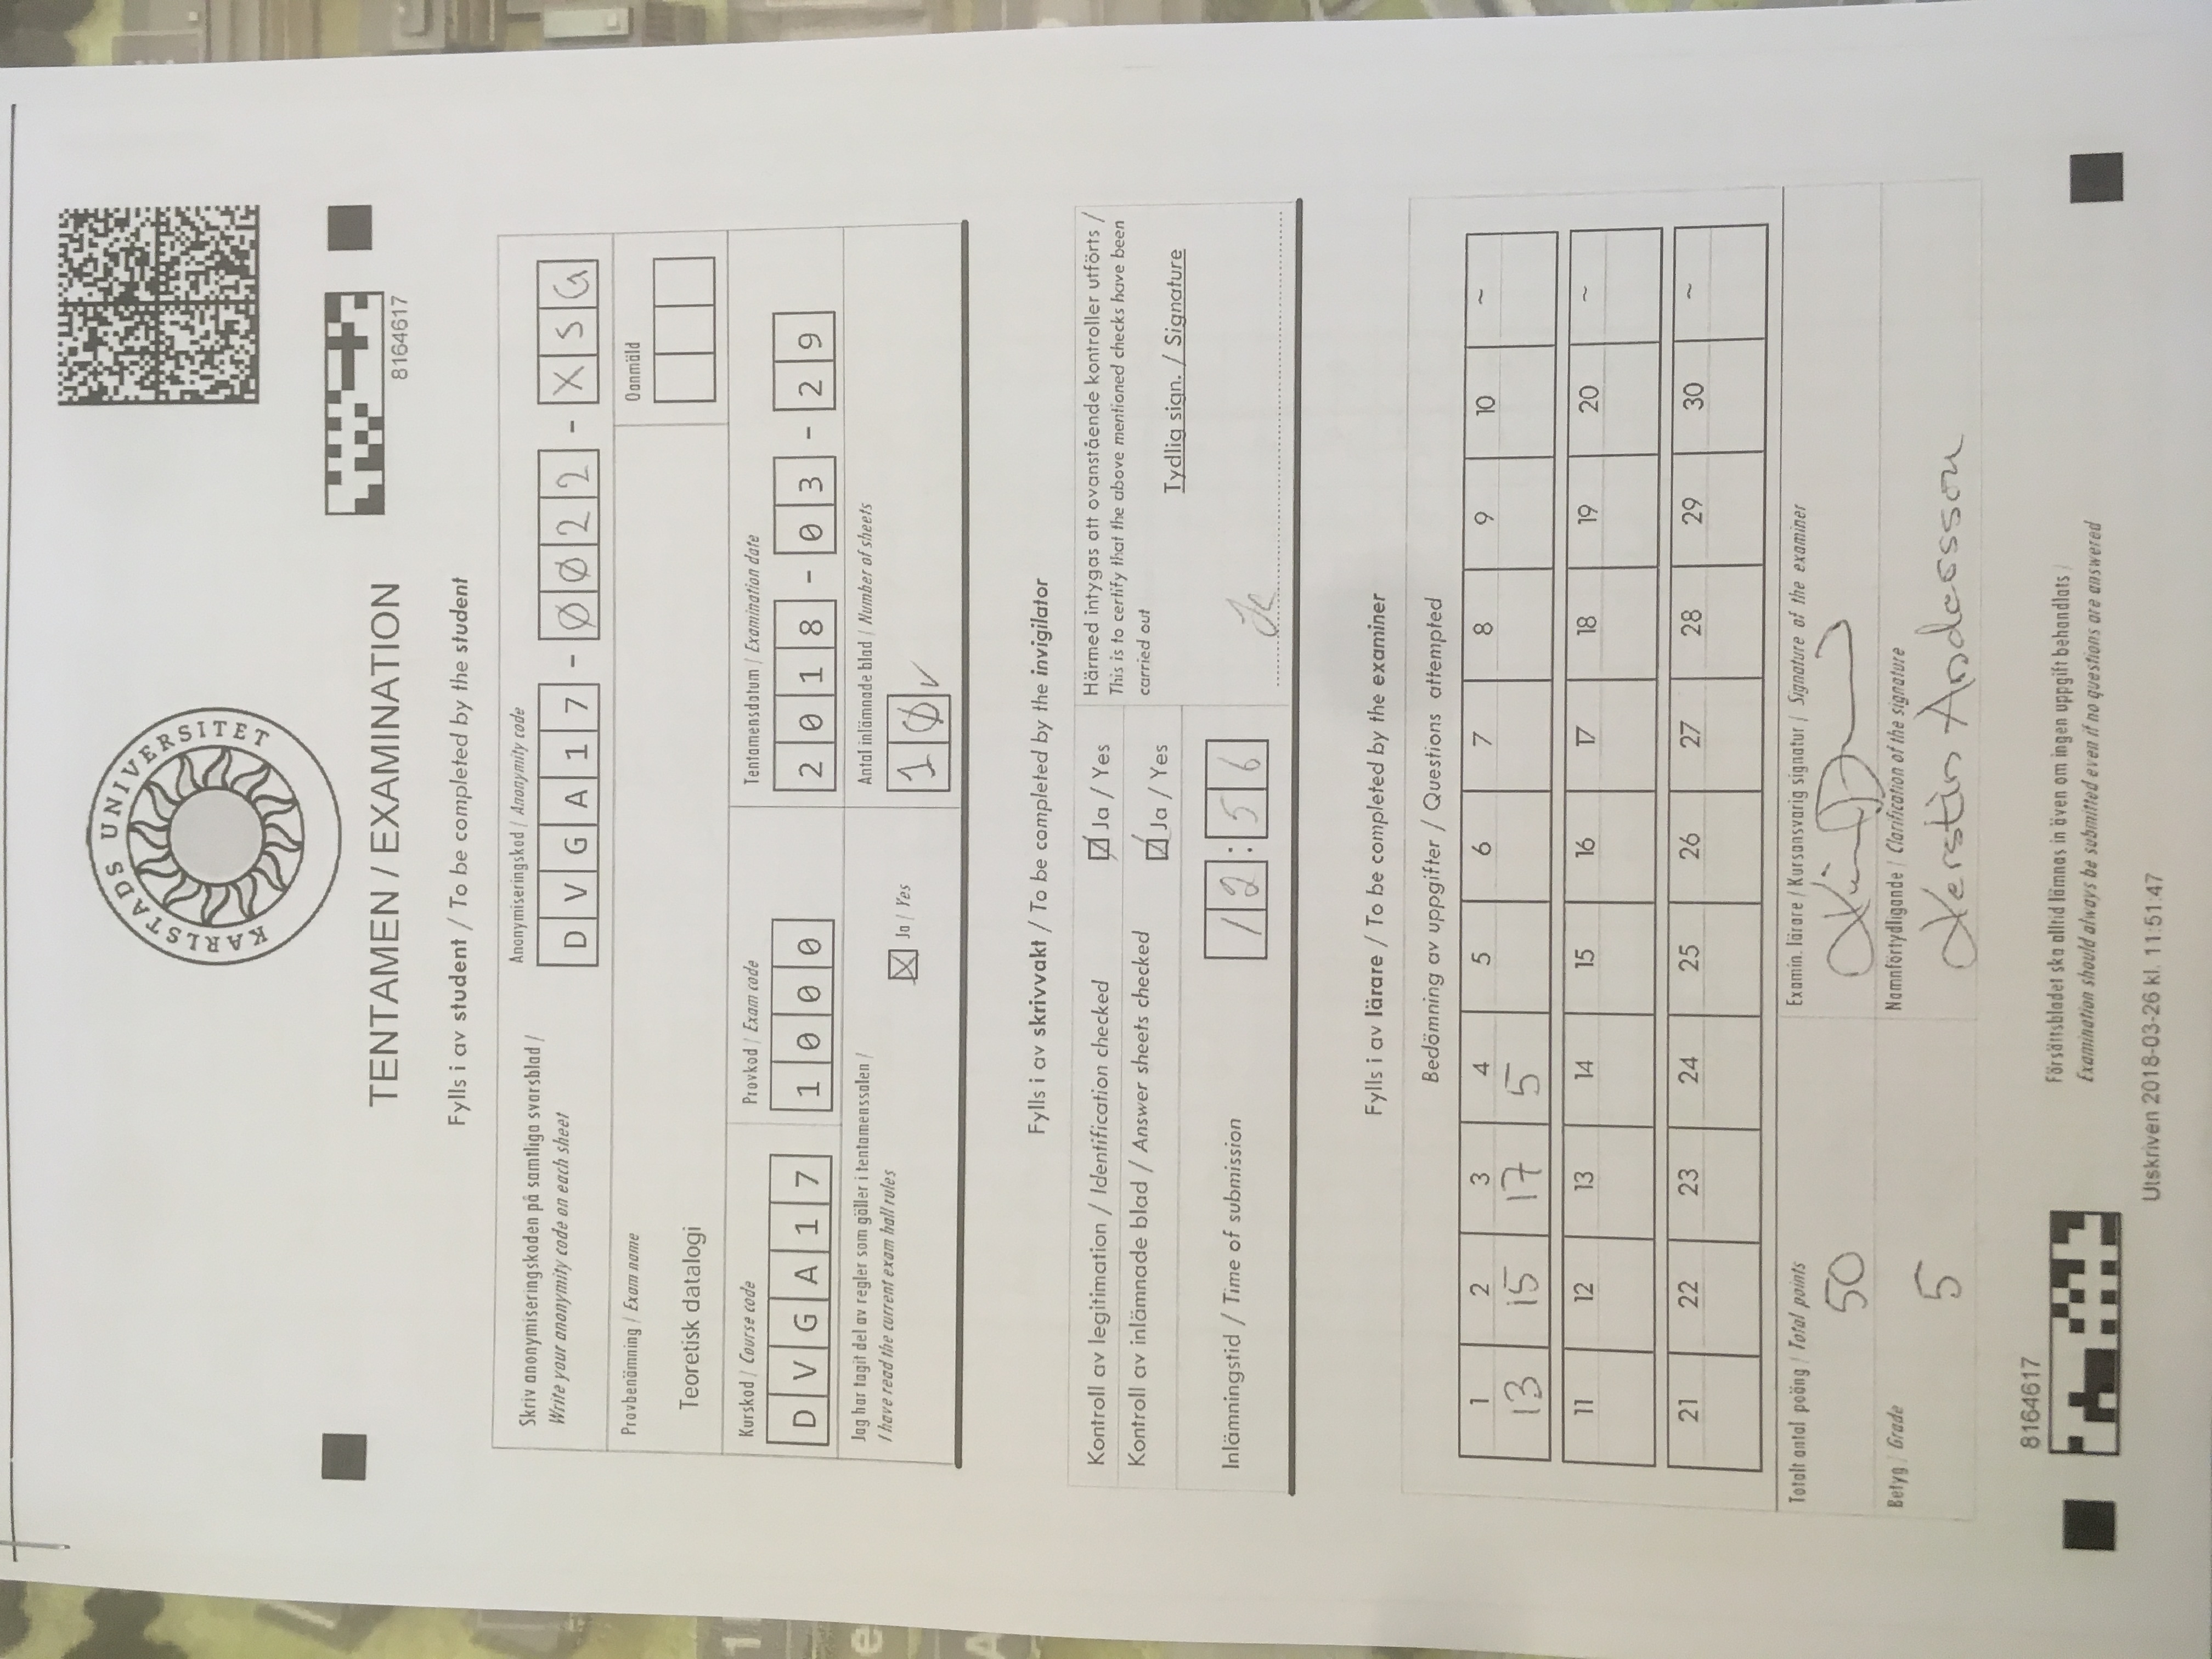 KARLSTADS UNIVERSITET
TENTAMEN / EXAMINATION
8164617
Fylls i av student / To be completed by the student
Skriv anonymiseringskoden på samtliga svarsblad /
Write your anonymity code on each sheet
Anonymiseringskod / Anonymity code
DVGA17-ØØ22-XSG
Provbenämning / Exam name
Teoretisk datalogi
Oanmäld
Kurskod / Course code
DVGA17
Provkod / Exam code
1000
Tentamensdatum / Examination date
2018-03-29
Jag har tagit del av regler som gäller i tentamenssalen /
I have read the current exam hall rules
Ja / Yes
Antal inlämnade blad / Number of sheets
1Ø
Fylls i av skrivvakt / To be completed by the invigilator
Kontroll av legitimation / Identification checked
Ja / Yes
Kontroll av inlämnade blad / Answer sheets checked
Ja / Yes
Härmed intygas att ovanstående kontroller utförts /
This is to certify that the above mentioned checks have been
carried out
Tydlig sign. / Signature
Inlämningstid / Time of submission
12:56
Fylls i av lärare / To be completed by the examiner
Bedömning av uppgifter / Questions attempted
1 2 3 4 5 6 7 8 9 10 ~
13 15 17 5
11 12 13 14 15 16 17 18 19 20 ~
21 22 23 24 25 26 27 28 29 30 ~
Totalt antal poäng / Total points
50
Examin. lärare / Kursansvarig signatur / Signature of the examiner
Betyg / Grade
5
Namnförtydligande / Clarification of the signature
Kerstin Andersson
8164617
Försättsbladet ska alltid lämnas in även om ingen uppgift behandlats /
Examination should always be submitted even if no questions are answered
Utskriven 2018-03-26 kl. 11:51:47